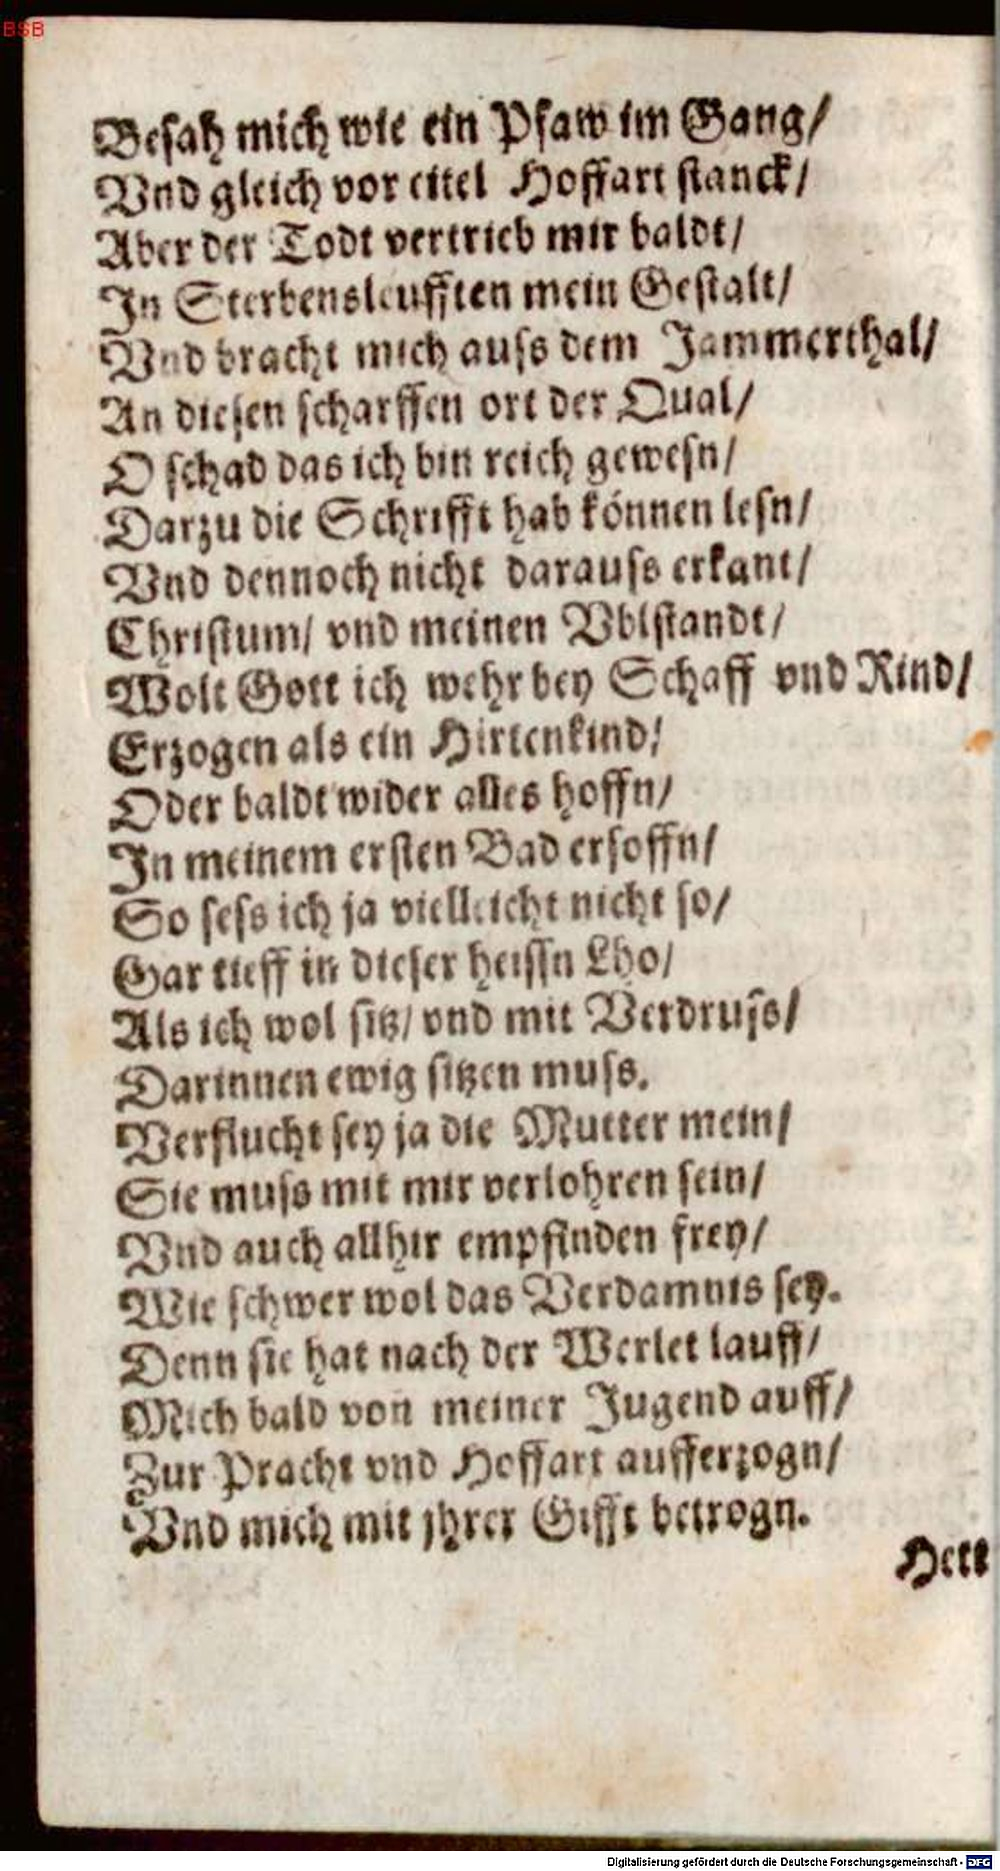 BSB
Besah mich wie ein Pfaw im Gang/
Vnd gleich vor eitel Hoffart stanck/
Aber der Todt vertrieb mir baldt/
In Sterbensleufften mein Gestalt/
Vnd bracht mich auſs dem Jammerthal/
An diesen scharffen ort der Qual/
O schad das ich bin reich gewesn/
Darzu die Schrifft hab können lesn/
Vnd dennoch nicht darauſs erkant/
Christum/ vnd meinen Vblstandt/
Wolt Gott ich wehr bey Schaff vnd Rind/
Erzogen als ein Hirtenkind/
Oder baldt wider alles hoffn/
In meinem ersten Bad ersoffn/
So seſs ich ja vielleicht nicht so/
Gar tieff in dieser heissn Lho/
Als ich wol sitz/ vnd mit Verdruſs/
Darinnen ewig sitzen muſs.
Verflucht sey ja die Mutter mein/
Sie muſs mit mir verlohren sein/
Vnd auch allhir empfinden frey/
Wie schwer wol das Verdamnis sey.
Denn sie hat nach der Werlet lauff/
Mich bald von meiner Jugend auff/
Zur Pracht vnd Hoffart aufferzogn/
Vnd mich mit jhrer Gifft betrogn.
Hett
Digitalisierung gefördert durch die Deutsche Forschungsgemeinschaft - DFG